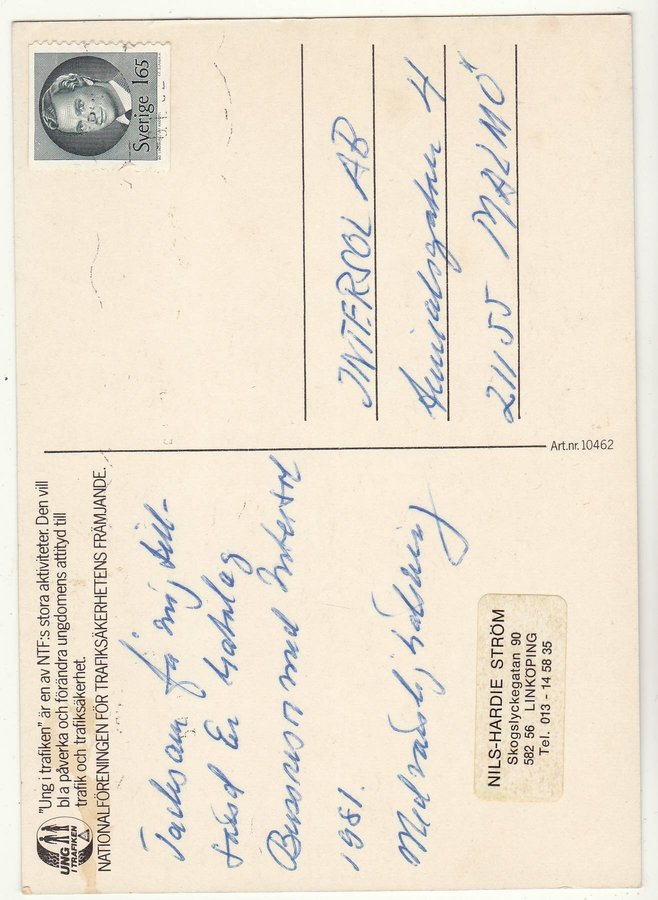 "Ung i trafiken" är en av NTF:s stora aktiviteter. Den vill
bl a påverka och förändra ungdomens attityd till
trafik och trafiksäkerhet.
NATIONALFÖRENINGEN FÖR TRAFIKSÄKERHETENS FRÄMJANDE.
UNG
I TRAFIKEN
Tacksam få mig till-
sänd Er katalog
Bussresor med Intersol
1981.
Med vänlig hälsning
NILS-HARDIE STRÖM
Skogslyckegatan 90
582 56 LINKÖPING
Tel. 013 - 14 58 35
Art.nr. 10462
Sverige 165
INTERSOL AB
Amiralsgatan 4
211 55 MALMÖ